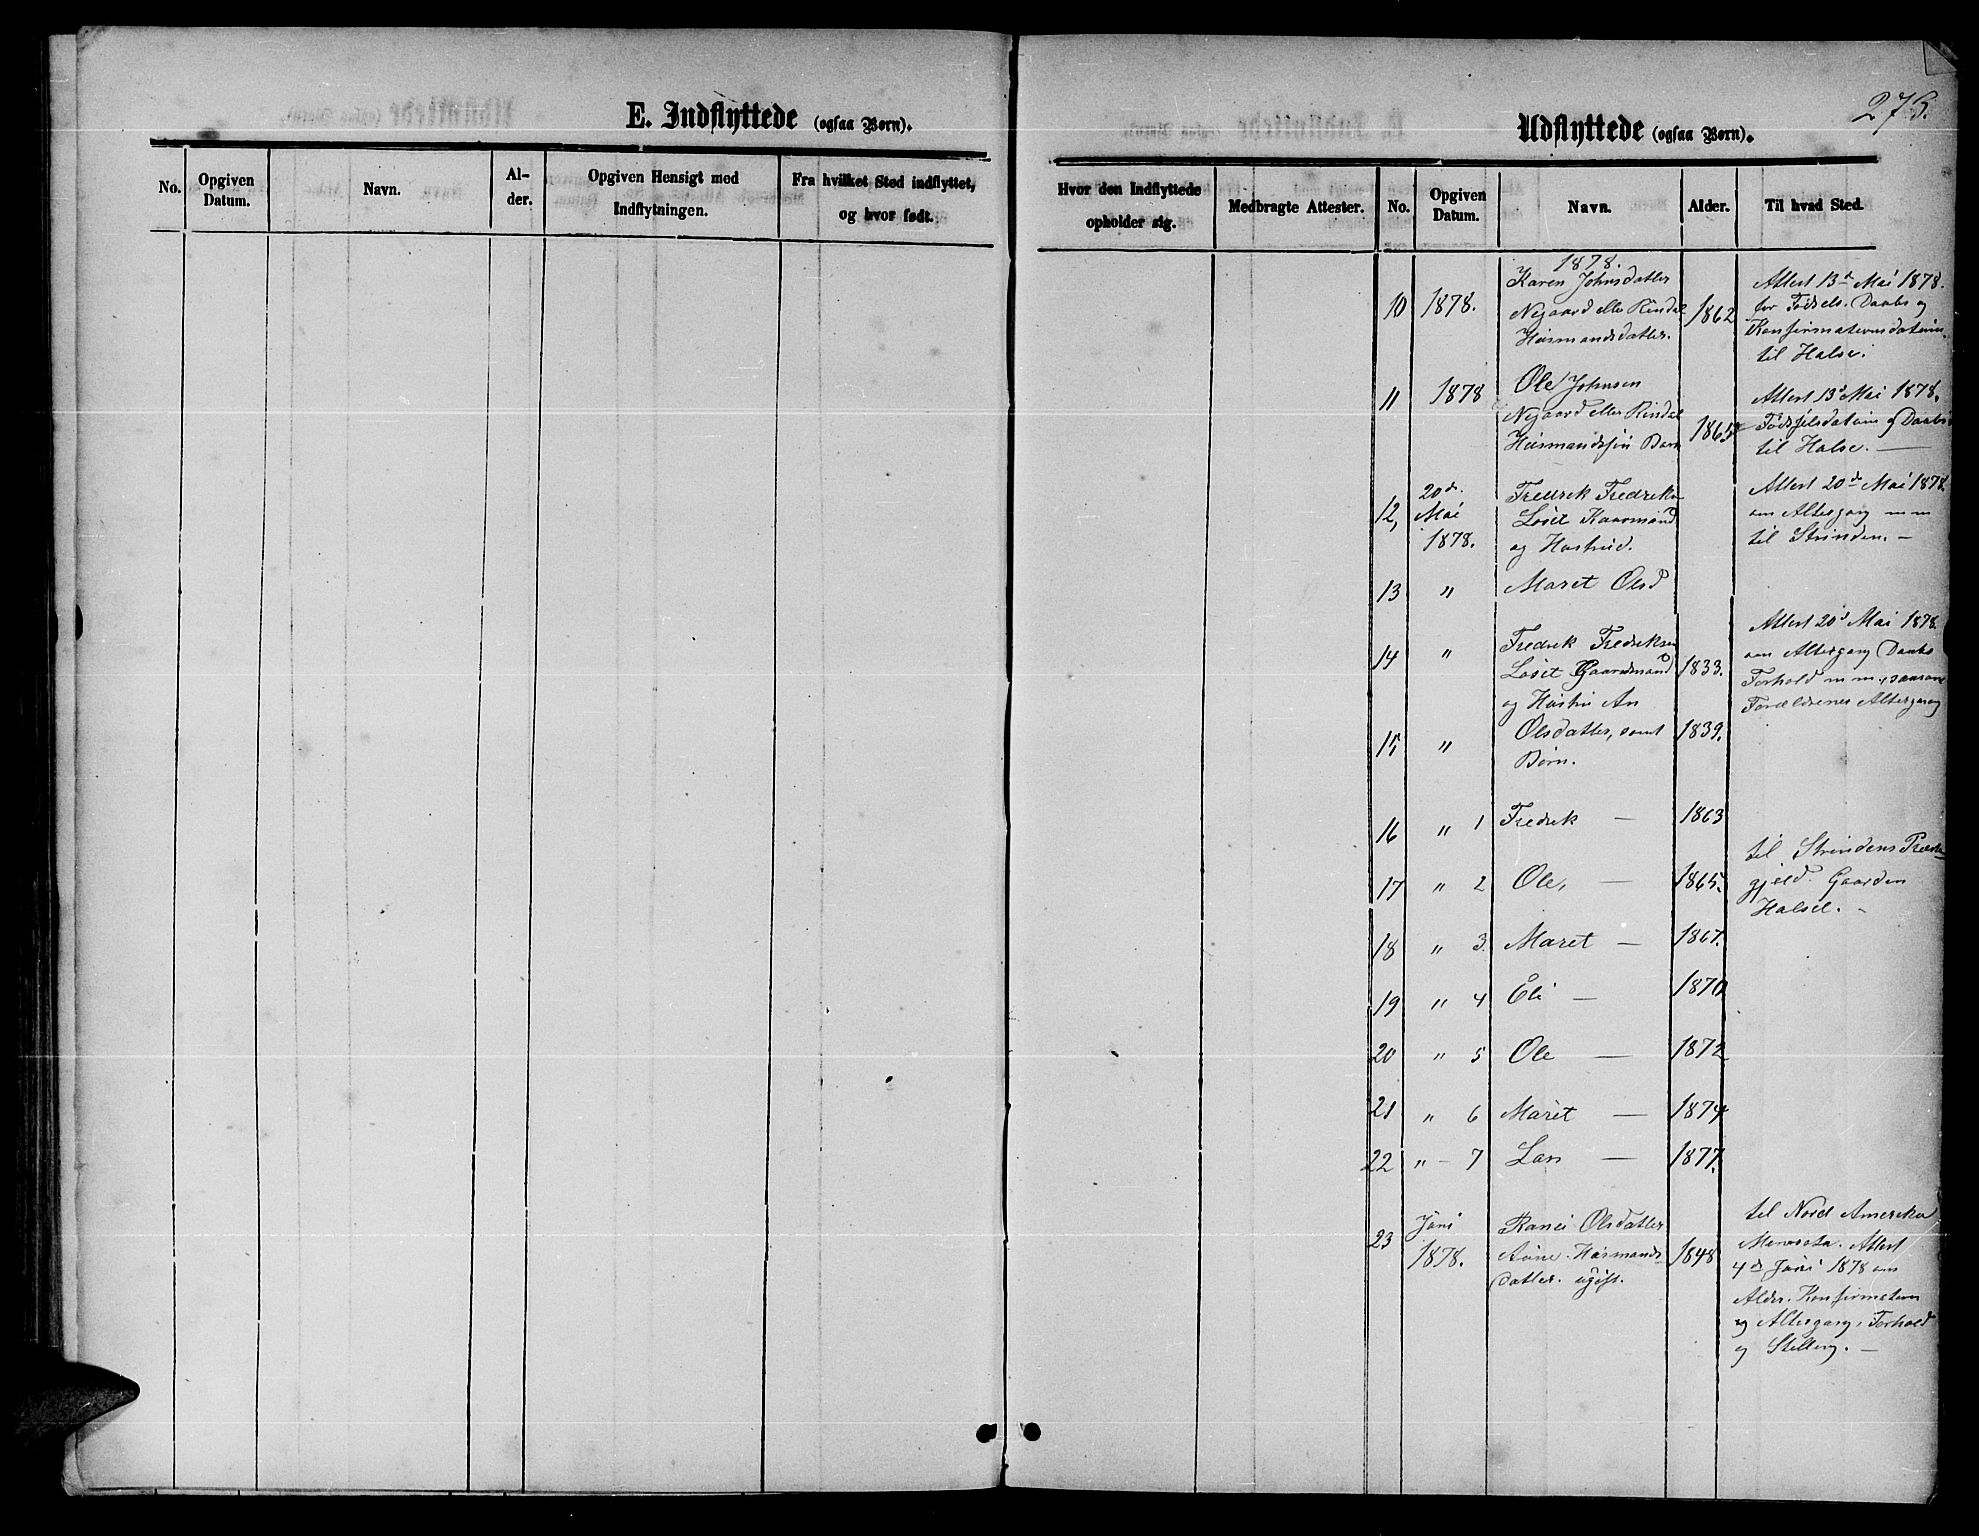 275.
E. Indflyttede (ogsaa Børn).
No.
Opgiven Datum.
Navn.
Al-
der.
Opgiven Hensigt med
Indflytningen.
Fra hvilket Sted indflyttet,
og hvor født.
Udflyttede (ogsaa Børn).
Hvor den Indflyttede
opholder sig.
Medbragte Attester.
No.
Opgiven
Datum.
Navn.
Alder.
Til hvad Sted.
1878.
10 1878. Karen Johnsdatter
Nygaard eller Rindal
Húsmandsdatter.
1862
Attest 13de Mai 1878.
for Fødsels. Daabs og
Konfirmationsdatum
til Halse.
11 1878 Ole Johnsen
Nygaard eller Rindal
Húsmandssøn Barn
1865
Attest 13d Mai 1878.
Fødsselsdatum og Daabs
til Halse. —
12, 20de Mai 1878.
Fredrik Fredriksen
Løset Kaarmand
og Hustrud.
Attest 20de Mai 1878.
om Altergang m m
til Strinden. —
13 " Maret Olsd
14 " Fredrik Fredriksen
Løset Gaardmand
og Hústrú An
1833.
Attest 20d Mai 1878.
om Altergang Daabs
Forhold m m, saasom
Forældrenes Altergang
15 " Olsdatter, samt
Børn.
1839.
16 " 1 Fredrik — 1863
17 " 2 Ole, — 1865.
til Strindens Præste
gjeld. Gaarden
Halset. —
18 " 3. Maret — 1867.
19 " 4 Eli — 1870
20 " 5 Ole — 1872
21 " 6 Maret — 1874
22 " — 7 Lars — 1877.
23 Júni
1878.
Ranei Olsdatter
Aúne. Húsmands-
datter. ugift.
1848
til Nord Amerika
Menesota. Attest
4de Júni 1878 om
Alder. Konfirmation
og Altergang, Forhold
og Stilling. —